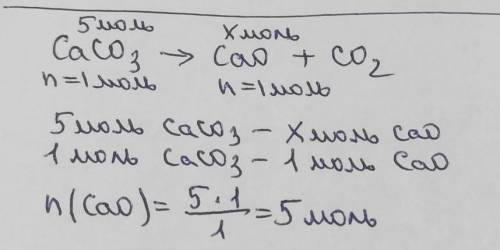 5 моль x моль
CaCO₃ → CaO + CO₂
n = 1 моль n = 1 моль
5 моль CaCO₃ – x моль CaO
1 моль CaCO₃ – 1 моль CaO
n(CaO) = 5·1/1 = 5 моль